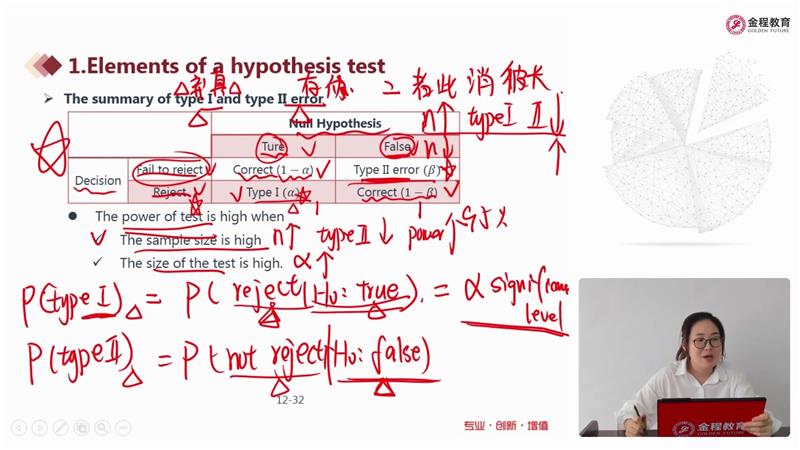 金程教育
GOLDEN FUTURE
1.Elements of a hypothesis test
弃真 存伪 二者此消彼长
The summary of type Ⅰ and type Ⅱ error
n↑ type Ⅰ Ⅱ ↓
Null Hypothesis
Ture False n↓ ↑
Decision
Fail to reject Correct (1 − α) Type Ⅱ error (β)
Reject Type Ⅰ (α) Correct (1 − β)
The power of test is high when
The sample size is high n↑ type Ⅱ ↓ power↑ 95%
The size of the test is high. α↑
P(type Ⅰ) = P( reject | H0: true) = α significance level
P(type Ⅱ) = P( not reject | H0: false)
12-32
专业·创新·增值
金程教育
GOLDEN FUTURE